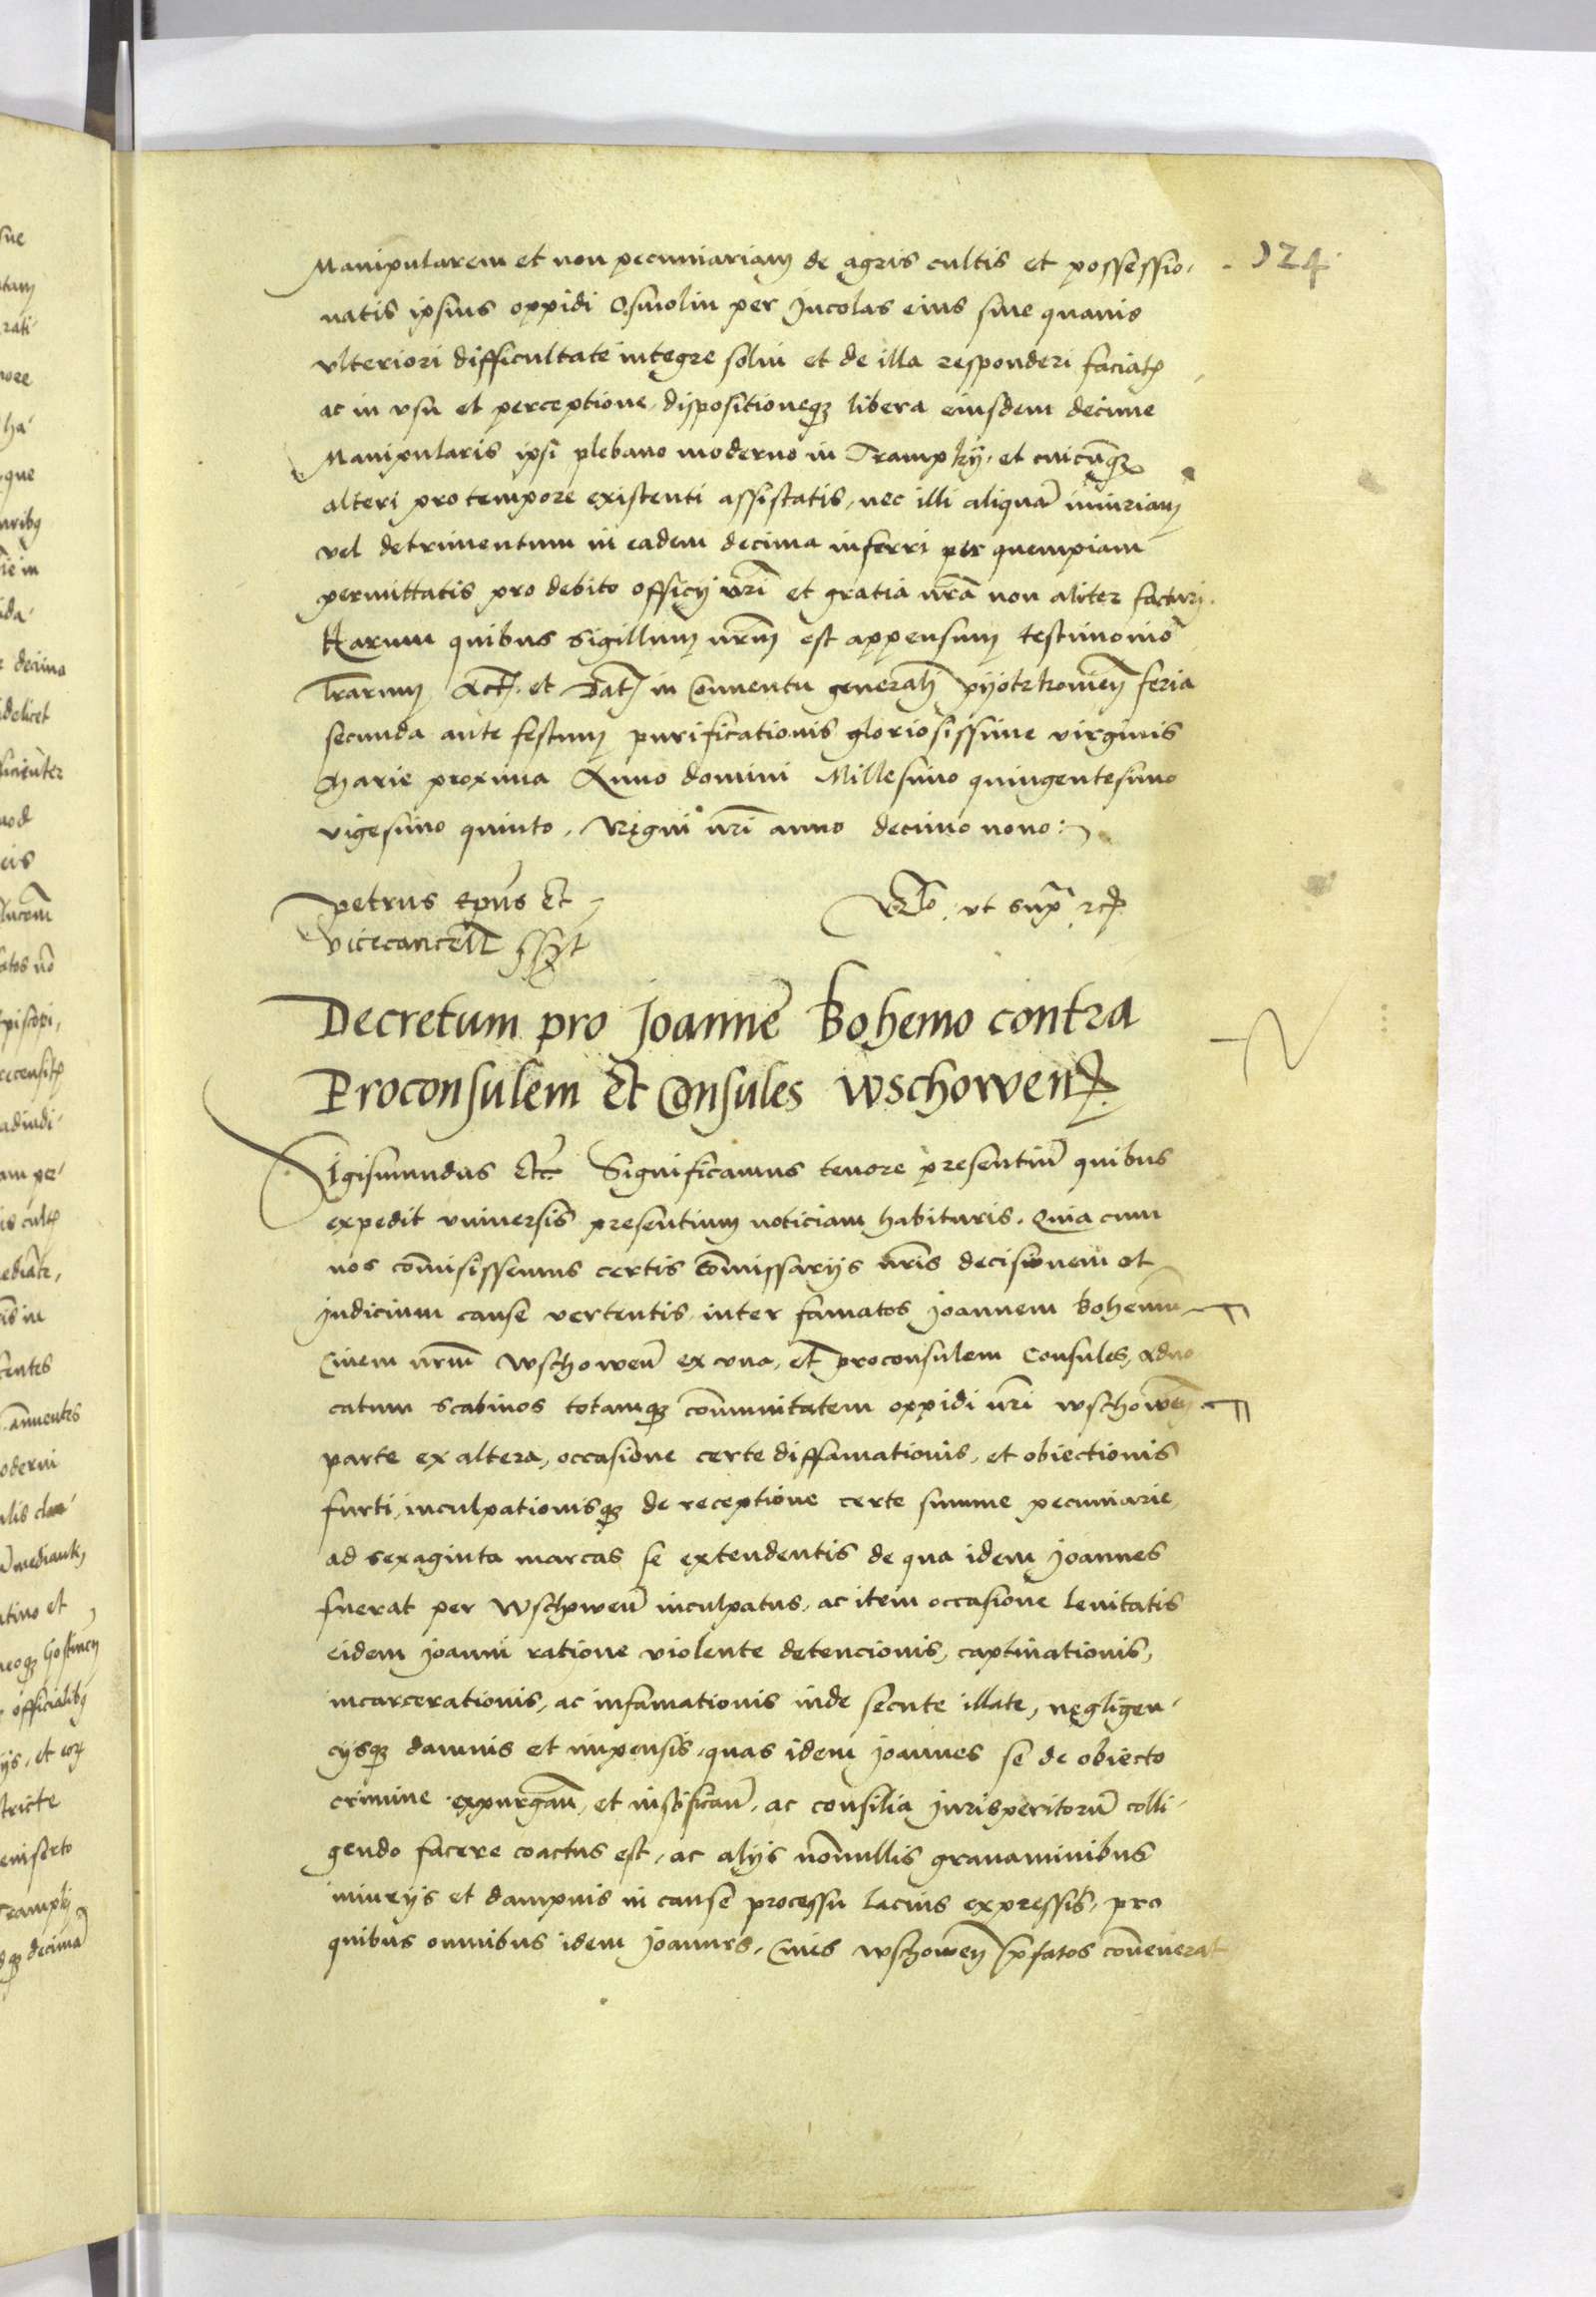 124
Manipularem et non pecuniariam de agris cultis et possessio-
natis ipsius oppidi Osmolin per Jncolas eius sine quauis
vlteriori difficultate integre solui et de illa responderi faciatis
ac in vsu et perceptione, dispositioneque libera eiusdem decime
Manipularis ipsi plebano moderno in Trampky, et cuicunque
alteri pro tempore existenti assistatis, nec illi aliquam iniuriam
vel detrimentum in eadem decima inferri per quempiam
permittatis pro debito officij vri et gratia nra non aliter facturi.
Harum quibus sigillum nrm est appensum testimonio
lrarum. Act. et Dat. in Conuentu generali pyotrkowien feria
secunda ante festum purificationis gloriosissime virginis
Marie proxima Anno domini Millesimo quingentesimo
vigesimo quinto. Regni nri anno decimo nono:
petrus Epus Et
vicecancell sszt
Rlo. vt supra rcp
Decretum pro Joanne Bohemo contra
Proconsulem Et Consules Wschowen
Sigismundus Etc Significamus tenore presentium quibus
expedit vniuersis presentium noticiam habituris. Quia cum
nos commisissemus certis Commissarijs nris decisionem et
Judicium cause vertentis inter famatos Joannem Bohemum
Ciuem nrm Wschowen ex vna, et proconsulem Consules, Aduo
catum scabinos totamque communitatem oppidi nri Wschowen
parte ex altera, occasione certe diffamationis, et obiectionis
furti, inculpationisque de receptione certe summe pecuniarie
ad sexaginta marcas se extendentis de qua idem Joannes
fuerat per Wschowen inculpatus, ac item occasione leuitatis
eidem Joanni ratione violente detencionis, captiuationis,
incarcerationis, ac infamationis inde secute illate, negligen-
cijsque damnis et impensis, quas idem Joannes se de obiecto
crimine expurgan, et iustifican, ac consilia Jurisperitorum colli-
gendo facere coactus est, ac alijs nonnullis grauaminibus
iniurijs et dampnis in cause processu lacius expressis, pro
quibus omnibus idem Joannes, Ciues Wschowen prefatos conuenerat